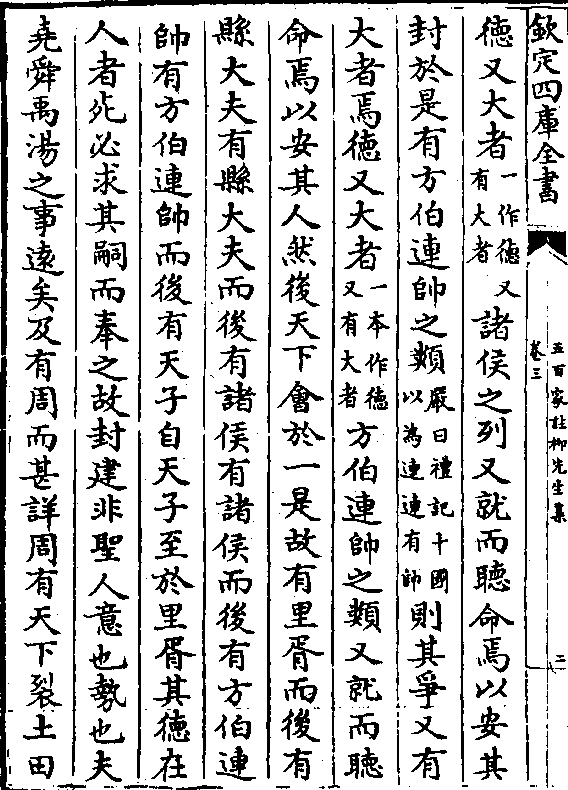 欽定四庫全書
五百家註柳先生集
卷三
二
德又大者一作德又有大者諸侯之列又就而聽命焉以安其
封於是有方伯連帥之類嚴曰禮記十國以為連連有帥則其爭又有
大者焉德又大者一本作德又有大者方伯連帥之類又就而聽
命焉以安其人然後天下會於一是故有里胥而後有
縣大夫有縣大夫而後有諸侯有諸侯而後有方伯連
帥有方伯連帥而後有天子自天子至於里胥其德在
人者死必求其嗣而奉之故封建非聖人意也勢也夫
堯舜禹湯之事遠矣及有周而甚詳周有天下裂土田